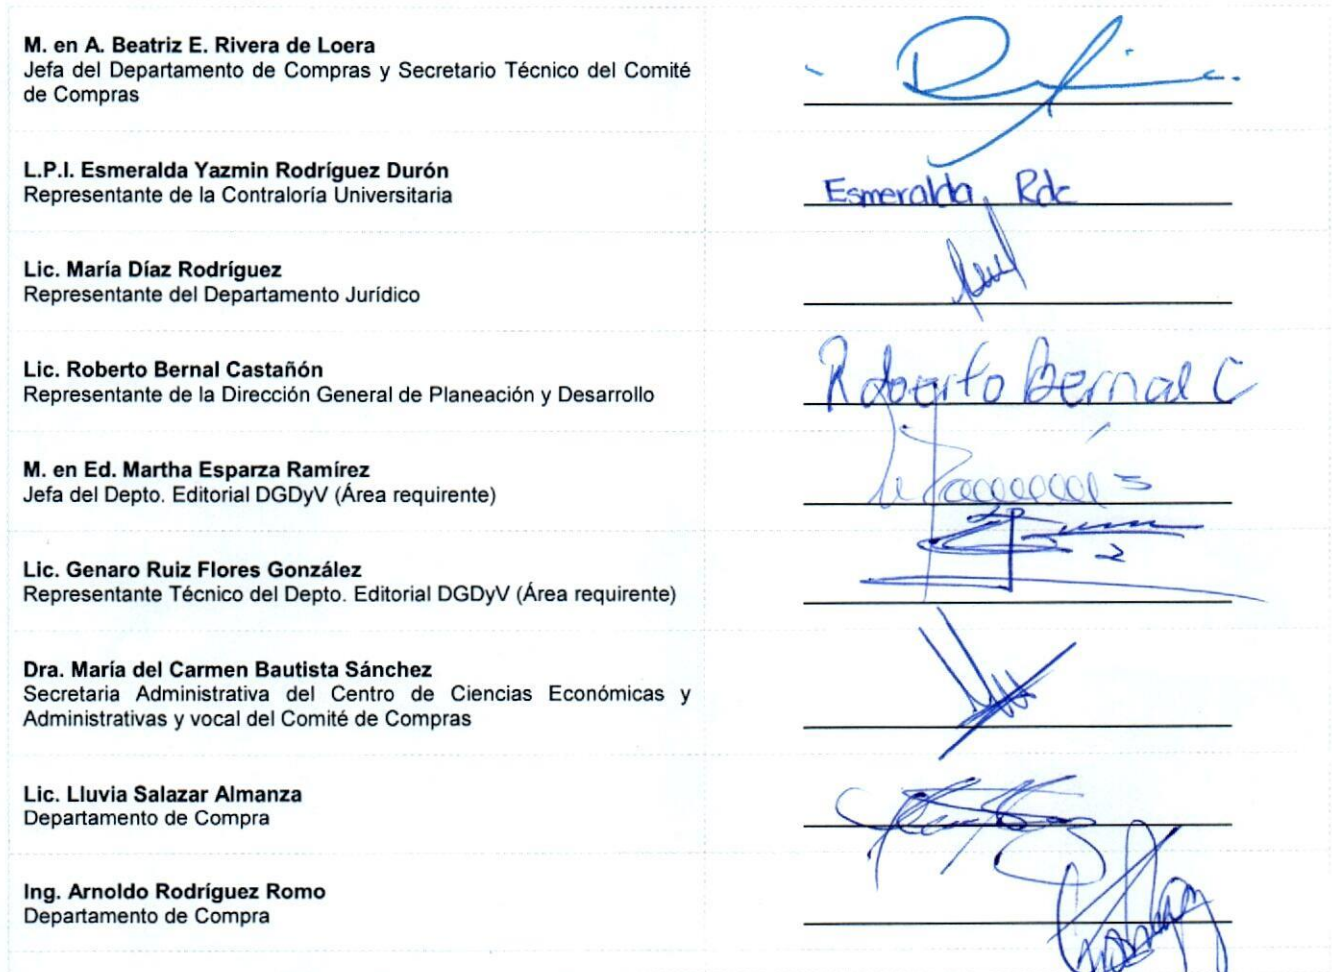 M. en A. Beatriz E. Rivera de Loera
Jefa del Departamento de Compras y Secretario Técnico del Comité
de Compras
L.P.I. Esmeralda Yazmin Rodríguez Durón
Representante de la Contraloría Universitaria
Esmeralda Rdz
Lic. María Díaz Rodríguez
Representante del Departamento Jurídico
Lic. Roberto Bernal Castañón
Representante de la Dirección General de Planeación y Desarrollo
Roberto Bernal C
M. en Ed. Martha Esparza Ramírez
Jefa del Depto. Editorial DGDyV (Área requirente)
Lic. Genaro Ruiz Flores González
Representante Técnico del Depto. Editorial DGDyV (Área requirente)
Dra. María del Carmen Bautista Sánchez
Secretaria Administrativa del Centro de Ciencias Económicas y
Administrativas y vocal del Comité de Compras
Lic. Lluvia Salazar Almanza
Departamento de Compra
Ing. Arnoldo Rodríguez Romo
Departamento de Compra